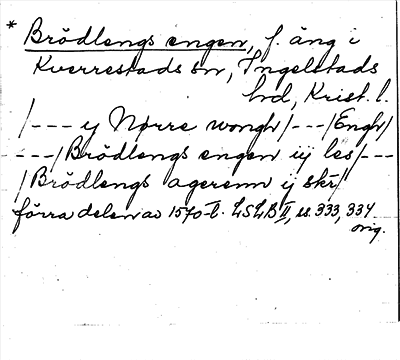 * Brödlengs engen, f. äng i
Kverrestads sn, Ingelstads
hd, Krist. l.
/--- ij Nørre wongh/---/Engh/
---/Brödlengs engen iij les/---
/Brödlengs agerenn ij skr/
förra delen av 1570-t. LSLB II, ss. 333, 334
orig.